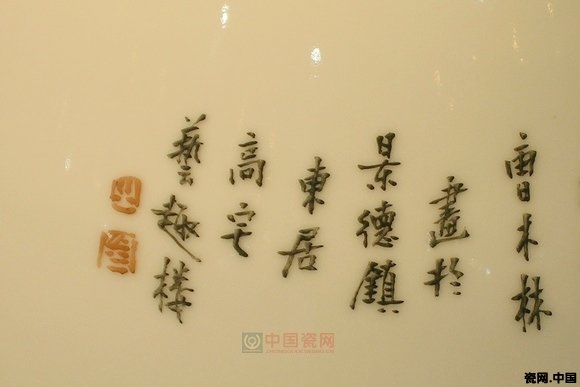 曹木林
畫於
景德鎮
東居
高宅
藝趣楼
中国瓷网
瓷网.中国